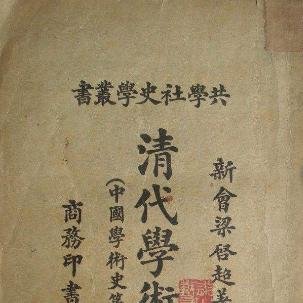 共學社史學叢書
新會梁啓超
清代學術
(中國學術史第
商務印書